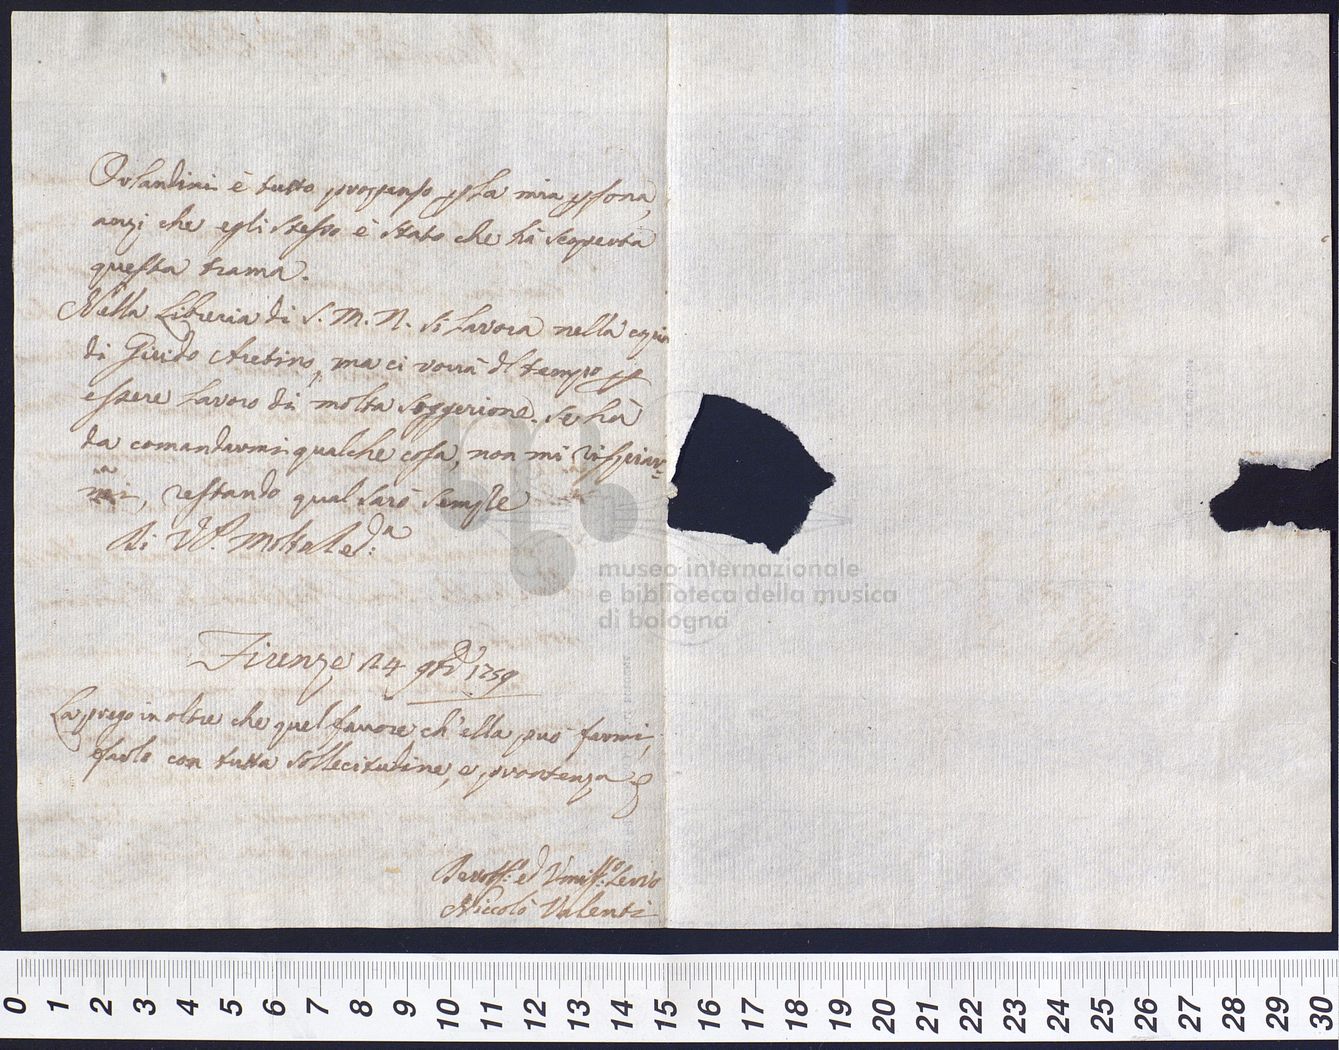 Orlandini è tutto propenso p sta mia psona,
anzi che egli stesso è stato che hà scoperta
questa trama.
Nella Libreria di S. M. N. si lavora nella copia
di Guido Aretino, ma ci vorrà dl tempo p
essere lavoro di molta soggezione. Se hà
da comandarmi qualche cosa, non mi risparmi,
restando qual sarò sempre
Di V. P. Molto Red.a
Firenze 24 9bre 1759
La prego in oltre che quel favore ch'ella può farmi,
farlo con tutta sollecitudine, e prontezza
Devotss.o ed Umilss.o Servo
Niccolò Valenti
museo internazionale
e biblioteca della musica
di bologna
0 1 2 3 4 5 6 7 8 9 10 11 12 13 14 15 16 17 18 19 20 21 22 23 24 25 26 27 28 29 30